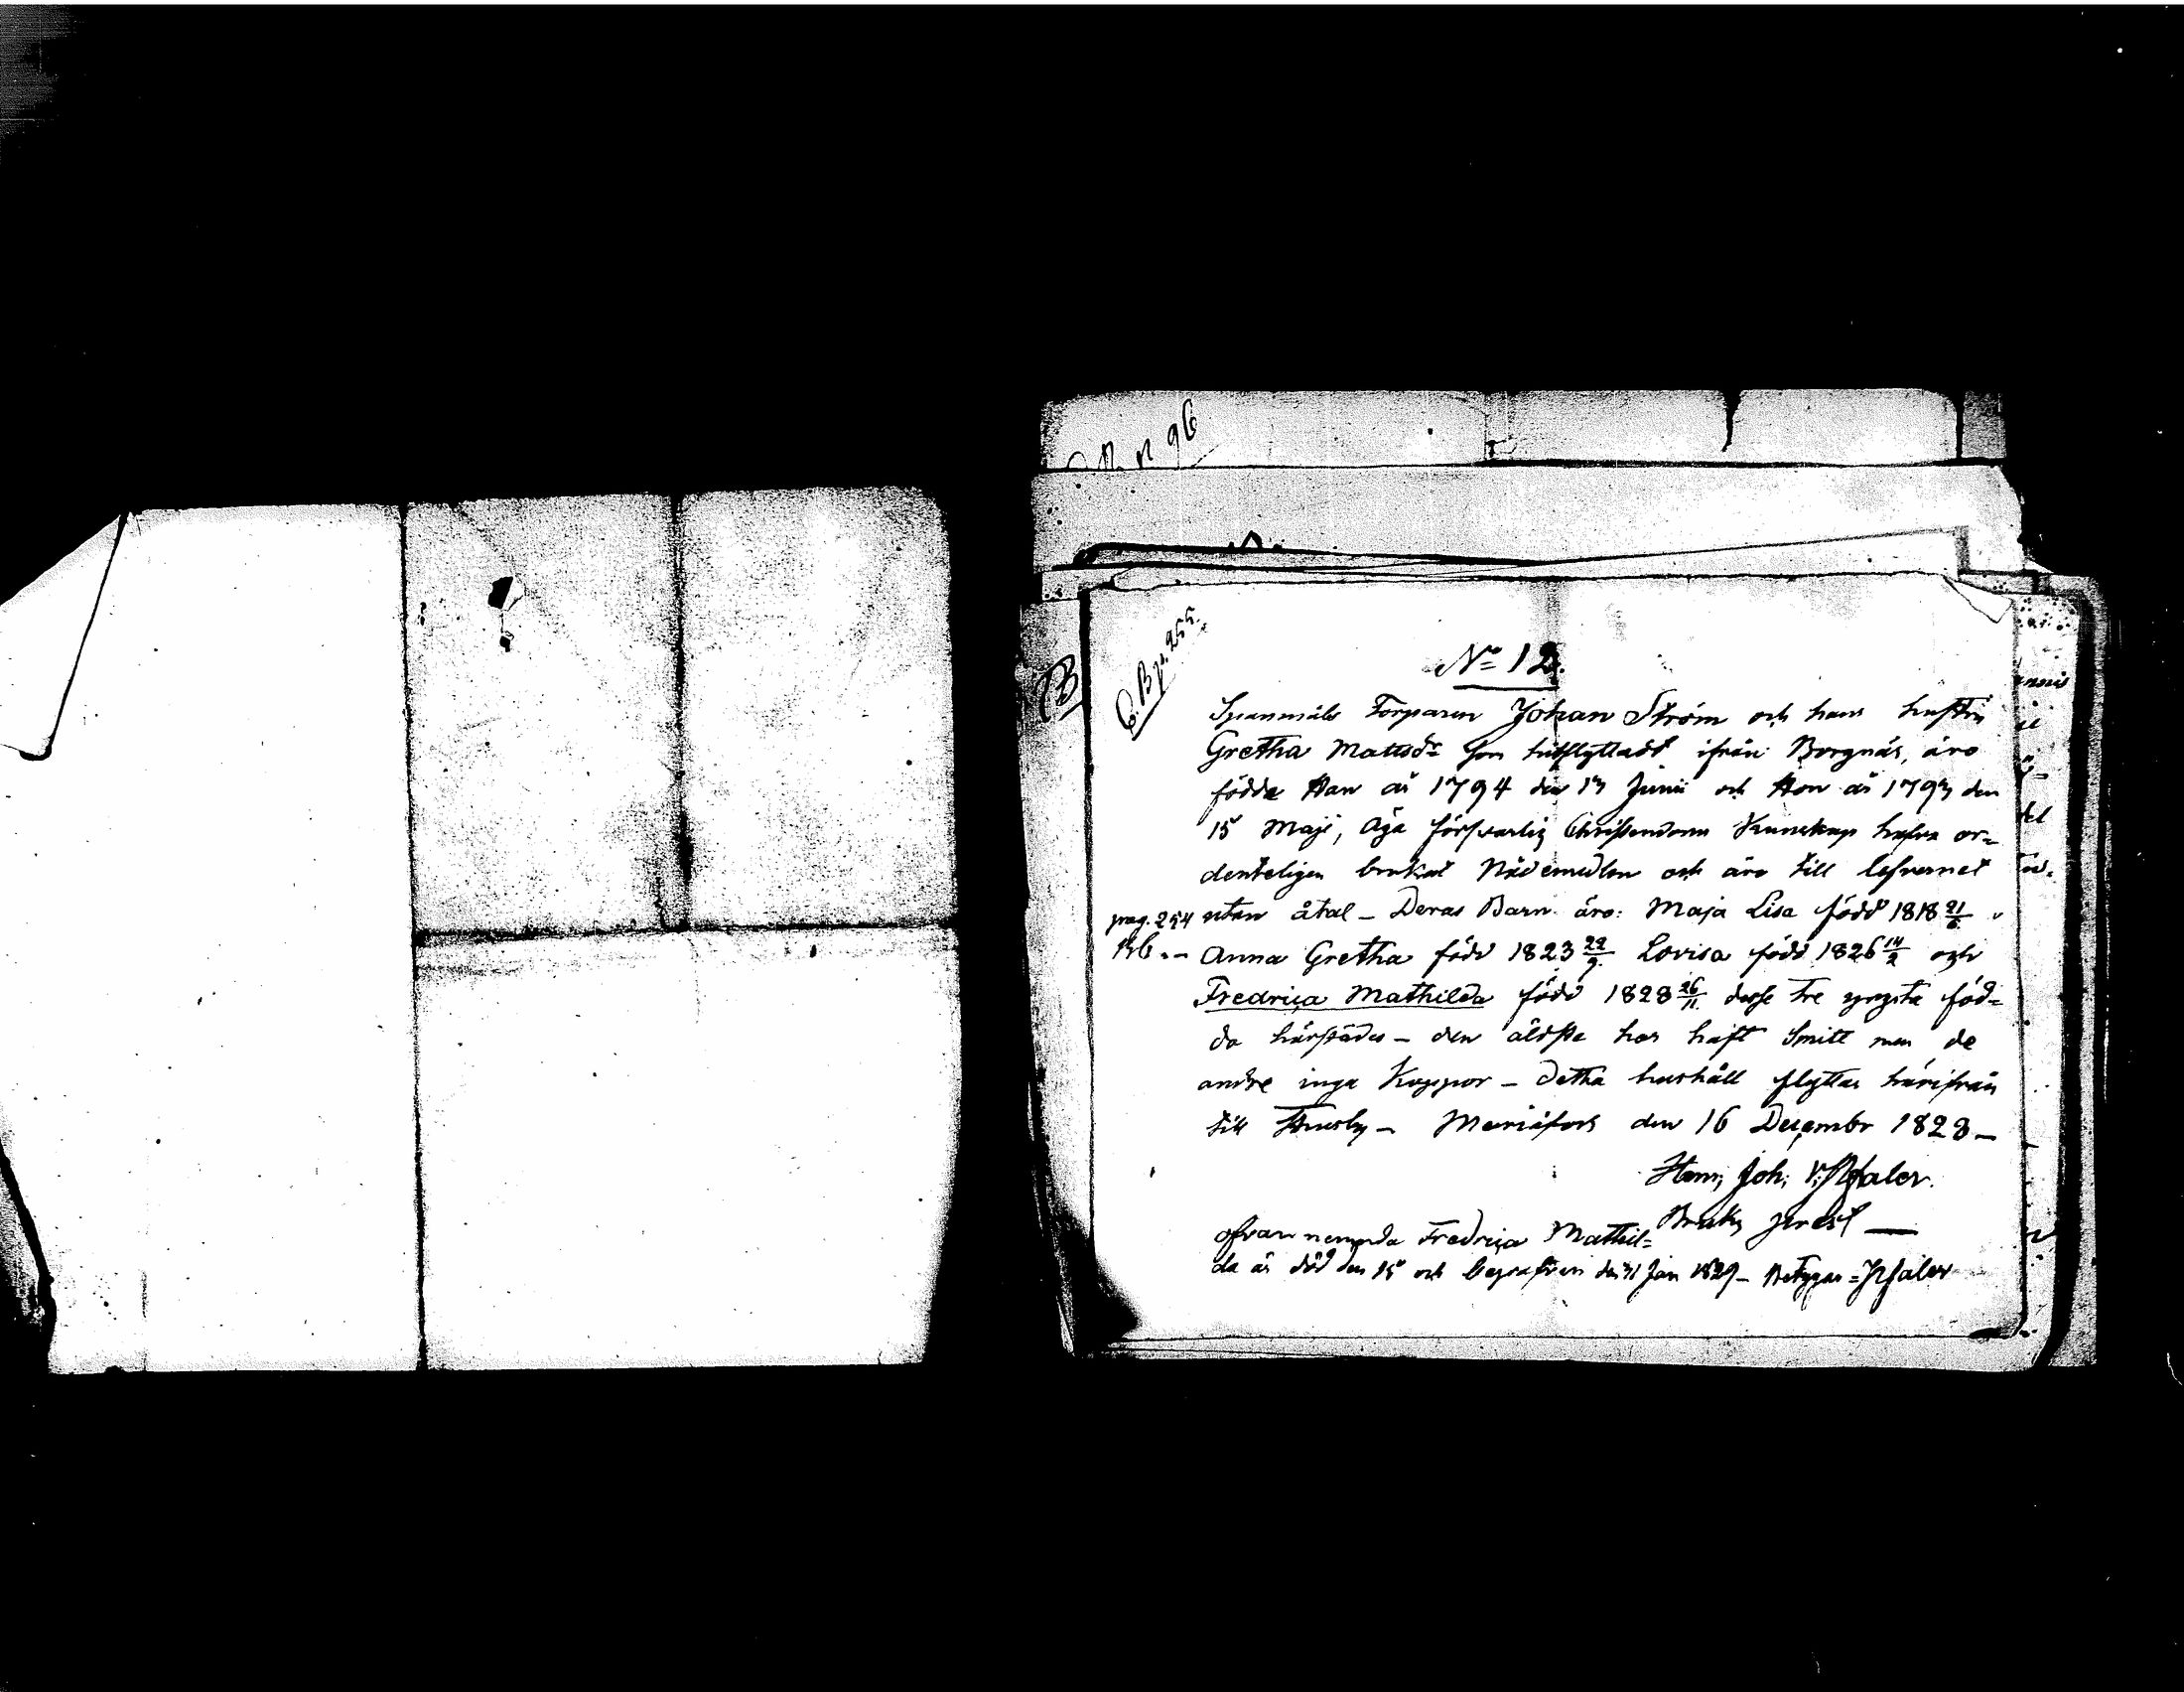 C.B. p. 255.
N° 12.
Spanmåls Torparen Johan Ström och hans hustru
Gretha Mattsdr som hitflyttadt ifrån Borgnäs, äro
födde Han år 1794 den 13 Junii och Hon år 1793 den
15 Maji, äga försvarlig Christendoms Kunskap hafva or=
denteligen brukat Nådemedlen och äro till lefvernet
pag. 254 utan åtal – Deras Barn äro: Maja Lisa född 1818 21/6
136. – Anna Gretha född 1823 22/9. Lovisa född 1826 14/2 och
Fredrica Mathilda född 1828 26/11. desse tre yngsta föd=
da härstädes – den äldsta har haft Smitt men de
andre inga Koppor – Detta hushåll flyttar härifrån
till Husby – Mariæfors den 16 Decembr 1828 –
Henr. Joh. V. Pfaler.
Bruks Prest —
ofvan nemnda Fredrica Mathil=
da är död den 15 och begrafven den 31 Jan 1829 – Betygar = Pfaler